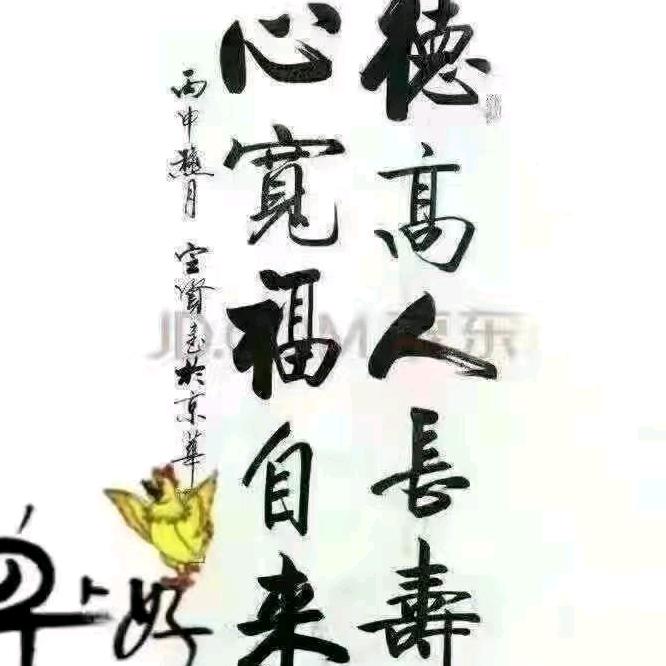 德高人長壽
心寬福自来
丙申 月 空賢 於京華
JD.COM 京东
早上好